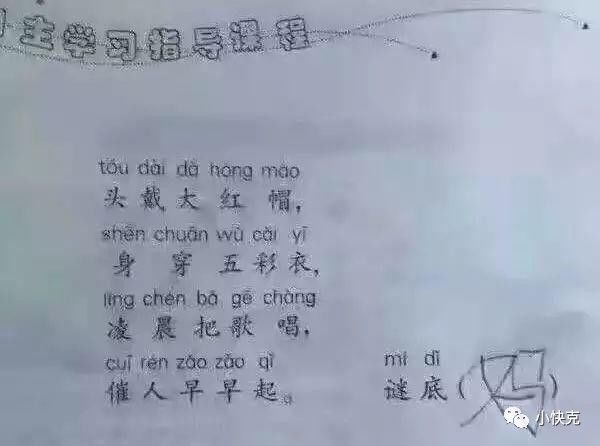 主学习指导课程
tóu dài dà hóng mào
头戴大红帽，
shēn chuān wǔ cǎi yī
身穿五彩衣，
líng chén bǎ gē chàng
凌晨把歌唱，
cuī rén zǎo zǎo qǐ mí dǐ
催人早早起。 谜底(妈)
小快克